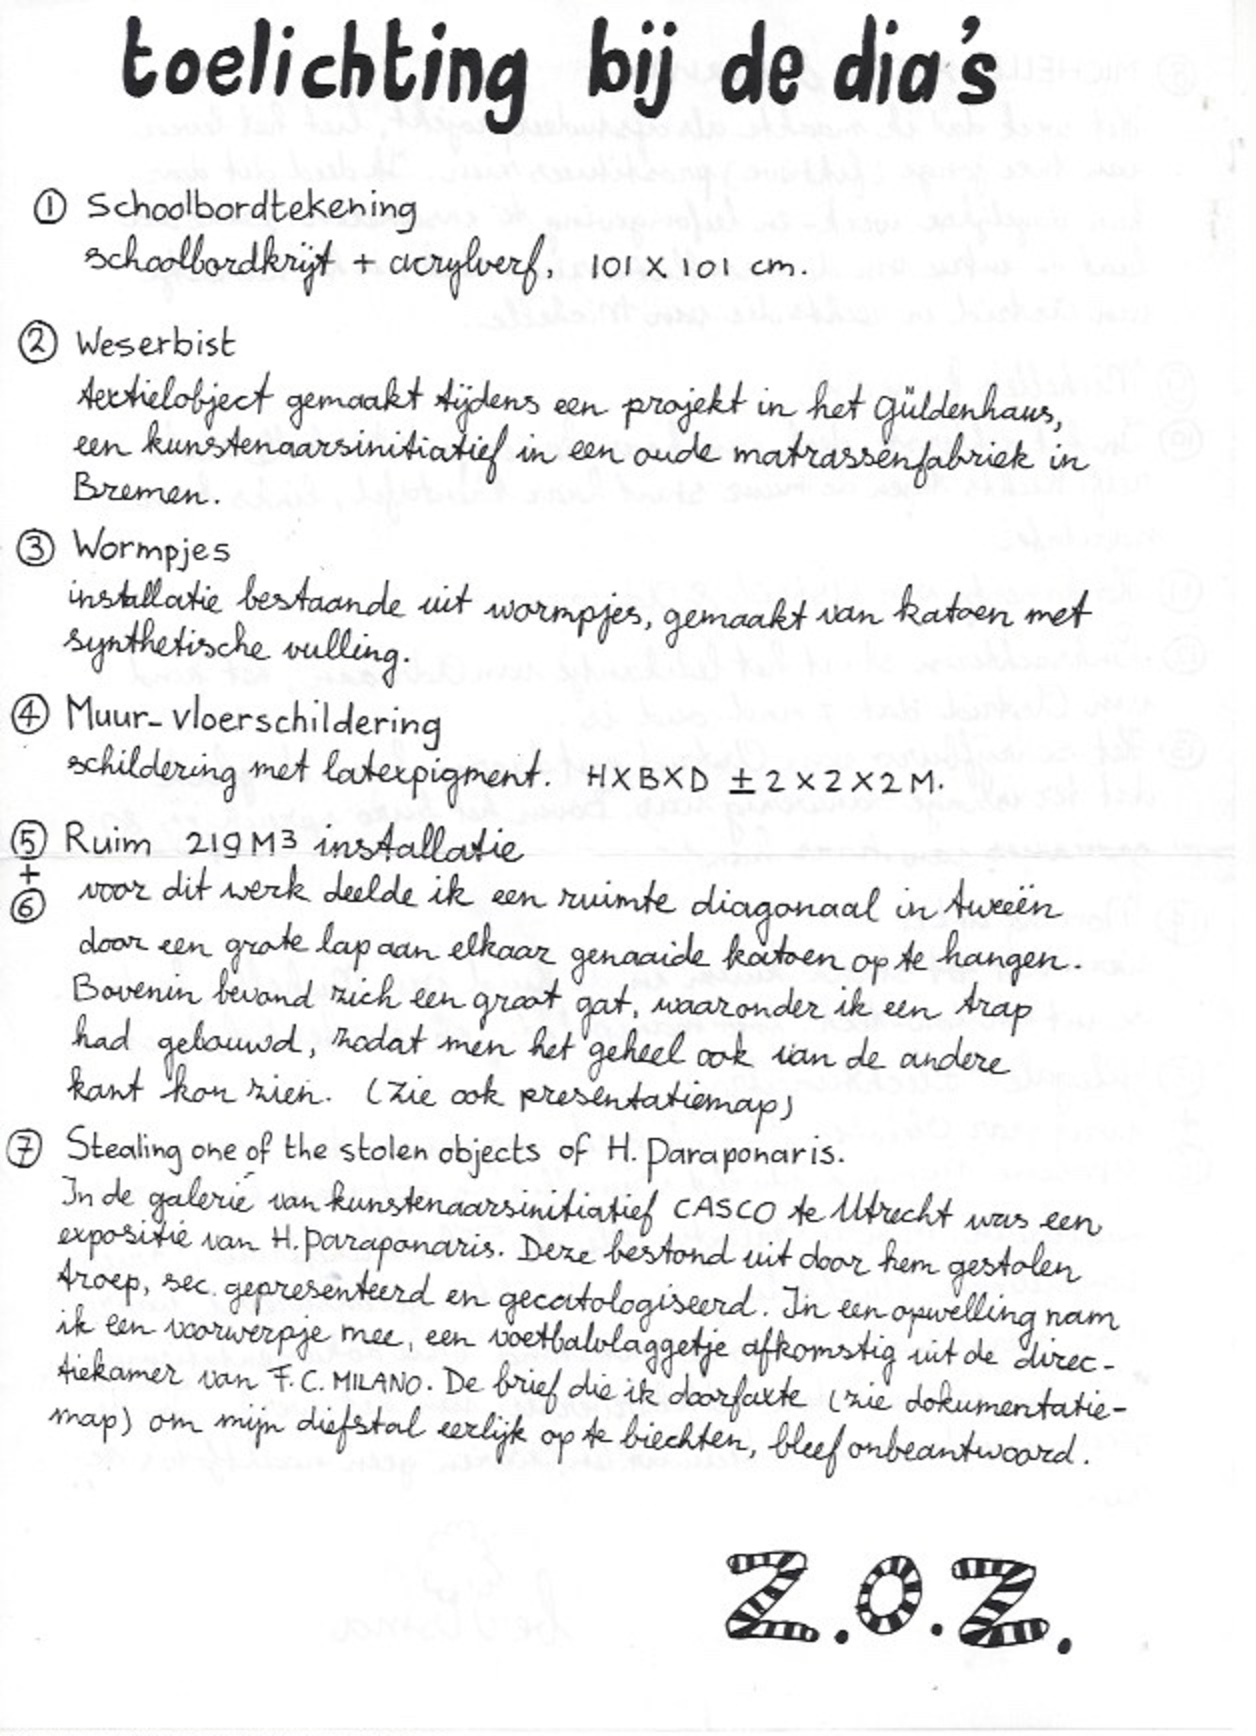 toelichting bij de dia's
① Schoolbordtekening
schoolbordkrijt + acrylverf, 101 X 101 cm.
② Weserbist
textielobject gemaakt tijdens een projekt in het Güldenhaus,
een kunstenaarsinitiatief in een oude matrassenfabriek in
Bremen.
③ Wormpjes
installatie bestaande uit wormpjes, gemaakt van katoen met
synthetische vulling.
④ Muur-vloerschildering
schildering met latexpigment. HXBXD ± 2 X 2 X 2 M.
⑤ Ruim 219 M3 installatie
+
⑥ voor dit werk deelde ik een ruimte diagonaal in tweeën
door een grote lap aan elkaar genaaide katoen op te hangen.
Bovenin bevond zich een groot gat, waaronder ik een trap
had gebouwd, zodat men het geheel ook van de andere
kant kon zien. (zie ook presentatiemap)
⑦ Stealing one of the stolen objects of H. Paraponaris.
In de galerie van kunstenaarsinitiatief CASCO te Utrecht was een
expositie van H. Paraponaris. Deze bestond uit door hem gestolen
troep, sec. gepresenteerd en gecatologiseerd. In een opwelling nam
ik een voorwerpje mee, een voetbalvlaggetje afkomstig uit de direc-
tiekamer van F.C. MILANO. De brief die ik doorfaxte (zie dokumentatie-
map) om mijn diefstal eerlijk op te biechten, bleef onbeantwoord.
Z.O.Z.